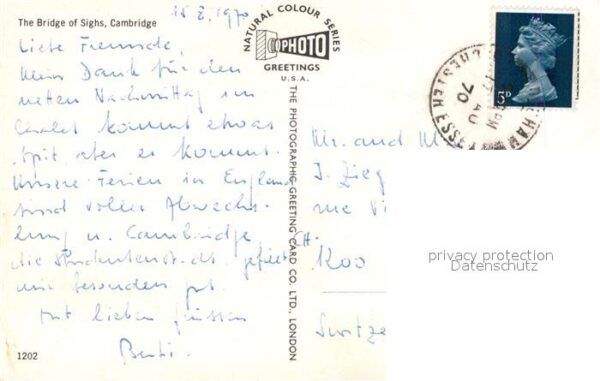 The Bridge of Sighs, Cambridge
1970
Liebe Freunde,
Mein Dank für den
netten Nachmittag im
Chalet kommt etwas
spät, aber er kommt.
Unsere Ferien in England
sind voller Abwechs-
lung u. Cambridge
die Studentenstadt gefällt
mir besonders gut.
mit lieben Grüssen
1202
NATURAL COLOUR SERIES
PHOTO
GREETINGS
U.S.A.
THE PHOTOGRAPHIC GREETING CARD CO. LTD., LONDON
5D
PM
70
Mr. and M
J. Zieg
rue
CH.
Switze
privacy protection
Datenschutz